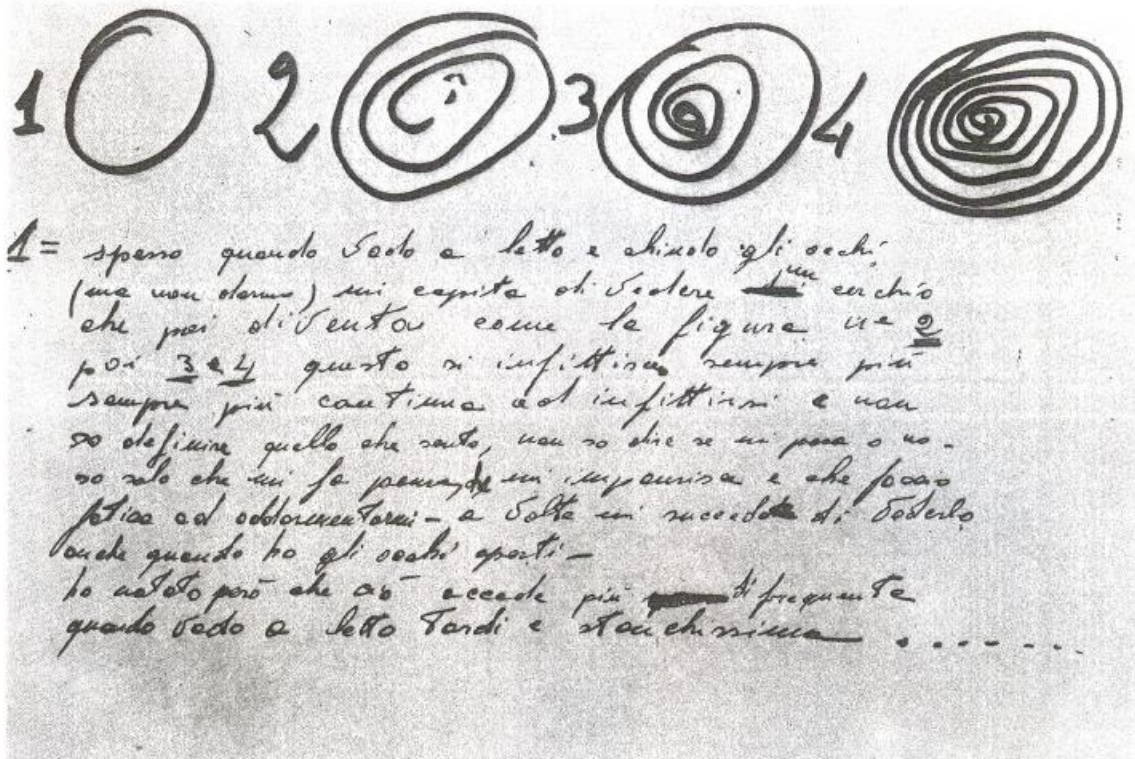 1 2 3 4
1= spesso quando vado a letto e chiudo gli occhi
(ma non dormo) mi capita di vedere un cerchio
che poi diventa come la figura n° 2
poi 3 e 4 questo si infittisce sempre più
sempre più continua ad infittirsi e non
so definire quello che sento, non so dire se mi piace o no -
so solo che mi fa pensare, mi impaurisce e che faccio
fatica ad addormentarmi - a volte mi succede di vederlo
anche quando ho gli occhi aperti -
ho notato però che ciò accade più di frequente
quando vado a letto tardi e stanchissima . . . . . . .